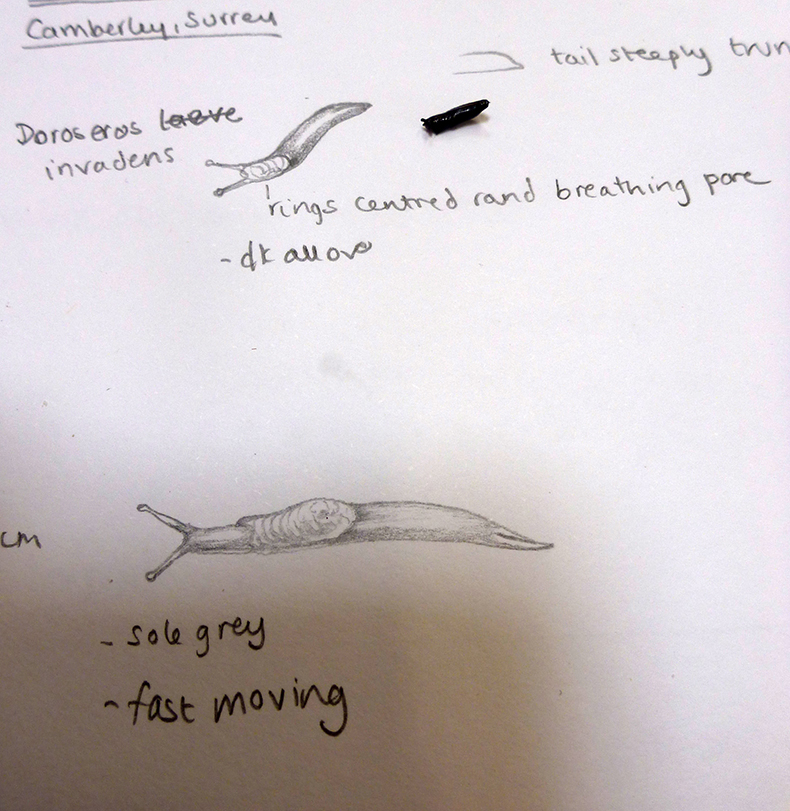 Camberley, Surrey
tail steeply trun
Doroseros laeve
invadens
rings centred rand breathing pore
- dk all over
cm
- sole grey
- fast moving